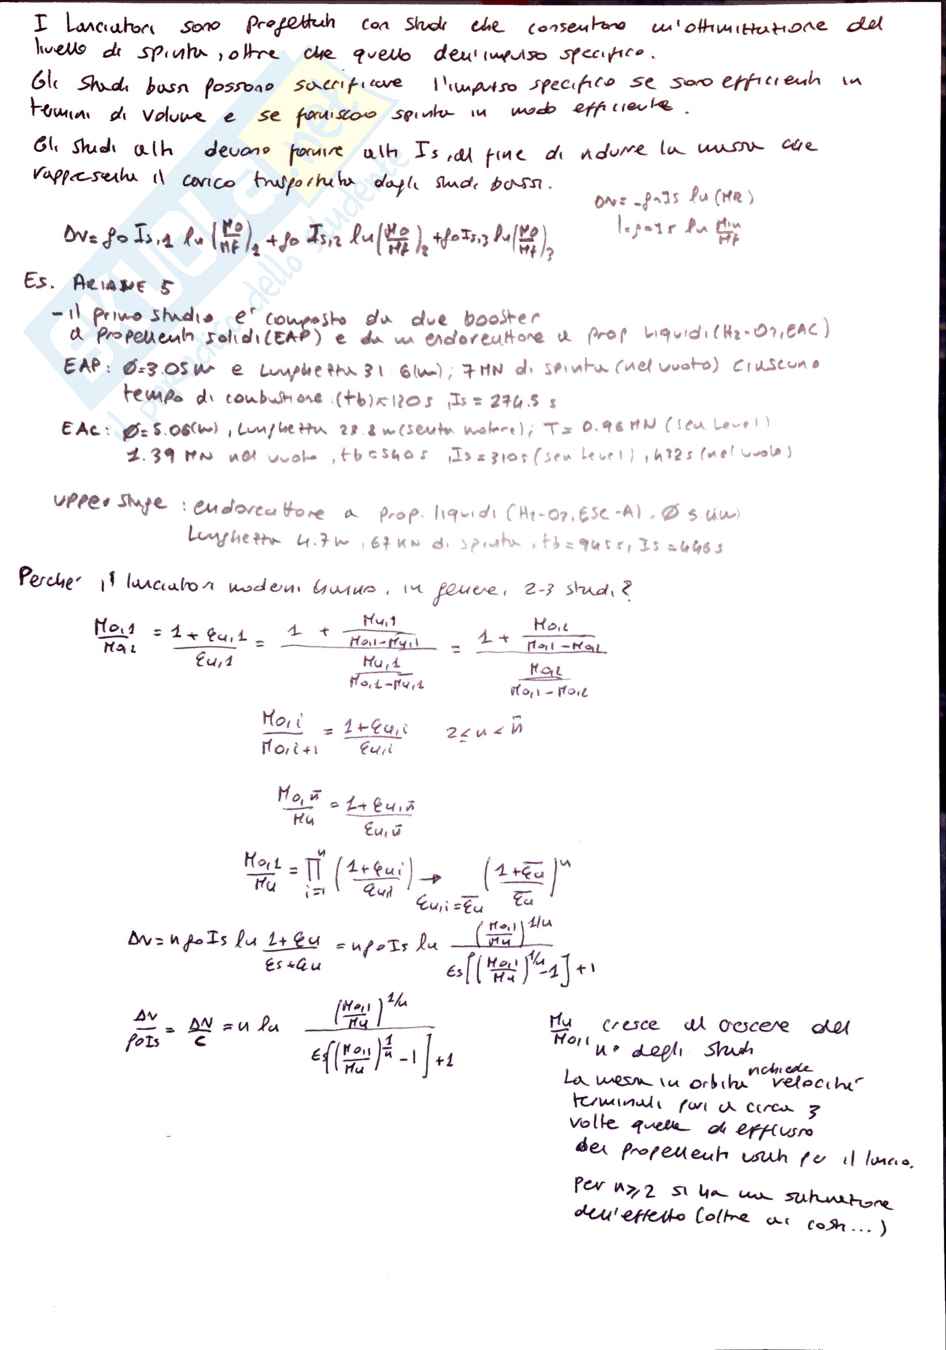 I Lanciatori sono progettati con stadi che consentono un'ottimizzazione del
livello di spinta, oltre che quello dell'impulso specifico.
Gli stadi bassi possono sacrificare l'impulso specifico se sono efficienti in
termini di volume e se forniscono spinta in modo efficiente.
Gli stadi alti devono fornire alti Is, al fine di ridurre la massa che
rappresenta il carico trasportato dagli stadi bassi.
ΔV = -g0 Is ln(MR)
Δv = g0 Is,1 ln(M0/Mf)1 + g0 Is,2 ln(M0/Mf)2 + g0 Is,3 ln(M0/Mf)3
Es. ARIANE 5
- il primo stadio e' composto da due booster
a propellenti solidi (EAP) e da un endoreattore a prop liquidi (H2-O2, EAC)
EAP: Ø=3.05 m e lunghezza 31.6(m); 7 MN di spinta (nel vuoto) ciascuno
tempo di combustione (tb)≈120s, Is = 274.5 s
EAC: Ø=5.06(m), lunghezza 28.8 m (senza motore); T= 0.96 MN (sea level)
1.39 MN nel vuoto, tb=540s, Is=310s (sea level), 432s (nel vuoto)
upper stage: endoreattore a prop. liquidi (H2-O2, ESC-A). Ø 5.4(m)
lunghezza 4.7m, 67 kN di spinta, tb=945s, Is=446s
Perche' i lanciatori moderni hanno, in genere, 2-3 stadi?
M0,1/M0,2 = (1+εu,1)/εu,1 = (1 + Mu,1/(M0,1-Mu,1))/(Mu,1/(M0,1-Mu,1)) = (1 + M0,2/(M0,1-M0,2))/(M0,2/(M0,1-M0,2))
M0,i/M0,i+1 = (1+εu,i)/εu,i 2≤n<n̄
M0,n̄/Mu = (1+εu,n̄)/εu,n̄
M0,1/Mu = ∏ i=1 n ((1+εu,i)/εu,i) → εu,i=ε̄u ((1+ε̄u)/ε̄u)^n
Δv = n g0 Is ln (1+εu)/(εs+εu) = n g0 Is ln (M0,1/Mu)^1/n / (εs[(M0,1/Mu)^1/n -1]+1)
Δv/g0Is = Δv/c = n ln (M0,1/Mu)^1/n / (εs[(M0,1/Mu)^1/n -1]+1)
Mu/M0,1 cresce al crescere del
n° degli stadi
La messa in orbita richiede velocita'
terminali pari a circa 3
volte quella di efflusso
dei propellenti usati per il lancio.
Per n≥2 si ha una saturazione
dell'effetto (oltre ai costi...)